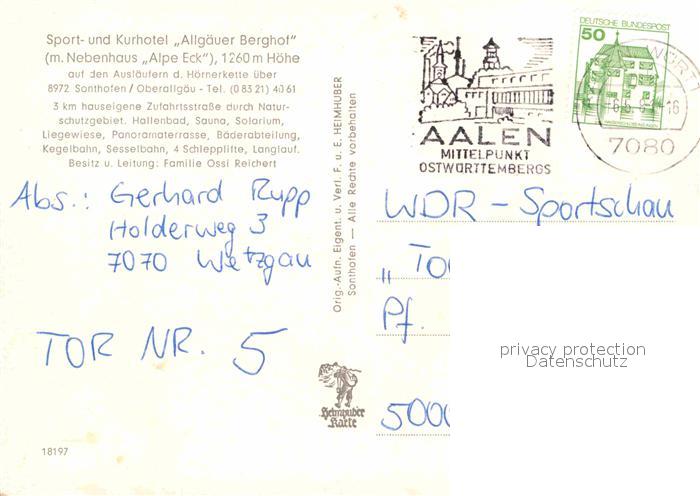 Sport- und Kurhotel „Allgäuer Berghof"
(m. Nebenhaus „Alpe Eck"), 1260 m Höhe
auf den Ausläufern d. Hörnerkette über
8972 Sonthofen / Oberallgäu - Tel. (0 83 21) 40 61
3 km hauseigene Zufahrtsstraße durch Natur-
schutzgebiet. Hallenbad, Sauna, Solarium,
Liegewiese, Panoramaterrasse, Bäderabteilung,
Kegelbahn, Sesselbahn, 4 Schlepplifte, Langlauf.
Besitz u. Leitung: Familie Ossi Reichert
Abs.: Gerhard Rupp
Holderweg 3
7070 Wetzgau
TOR NR. 5
18197
Orig.-Aufn. Eigent. u. Verl. F. u. E. HEIMHUBER
Sonthofen — Alle Rechte vorbehalten
Heimhuber
Karte
AALEN
MITTELPUNKT
OSTWÜRTTEMBERGS
DEUTSCHE BUNDESPOST
50
7080
WDR - Sportschau
„TO
Pf.
5000
privacy protection
Datenschutz